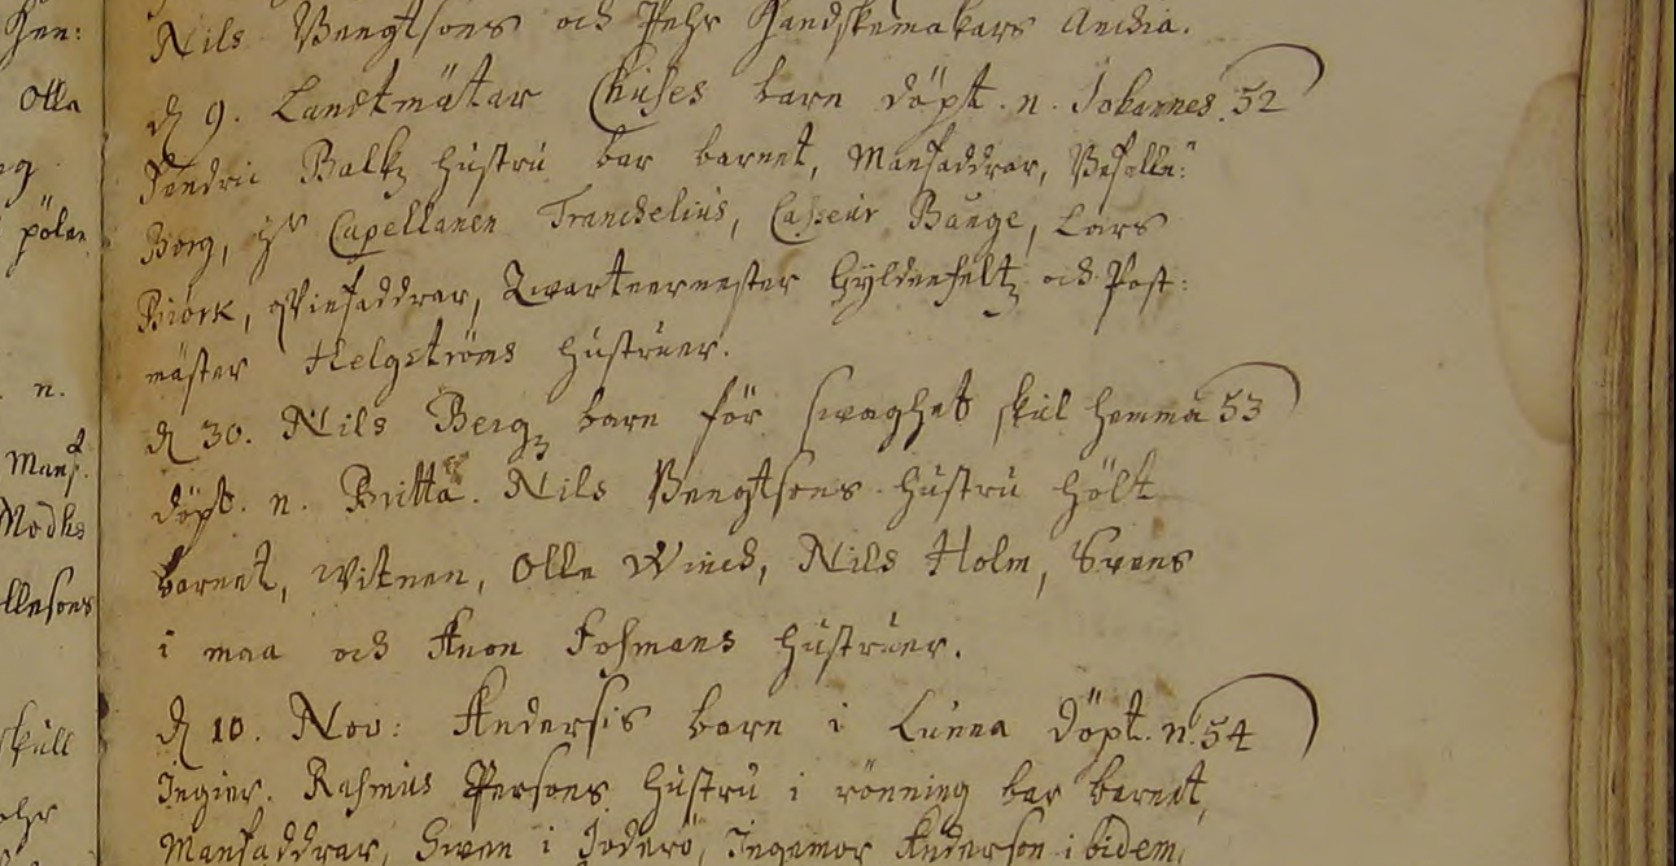 Hen:
Olla
pölar
n.
Mans
Modhs
ollesons
skull
Nils Bengtsons och Pehr Handskemakars Anckia.
d 9. Landtmätar Chuses barn döpt. n. Johannes. 52
Fendric Balkz hustru bar barnet, Mansfaddrar, Befalln:
Borg, Hr Capellanen Tranchelius, Casseur Bange, Lars
Biörk, qvinsfaddrar, Qwarteermester Gyldenfeltz och Post:
mäster Helgströms hustruer.
d 30. Nils Bergz barn för swaghet skul hemma 53
döpt. n. Britta. Nils Bengtsons hustru hölt
barnet, Witnen, Olle Winck, Nils Holm, Svens
i maa och Anon Fohmans hustruer.
d 10. Nov: Andersis barn i Lunna döpt. n. 54
Ingier. Rasmus Persons hustru i rönning bar barnet,
Mansfaddrar, Swen i Joderö, Ingemor Anderson ibidem,